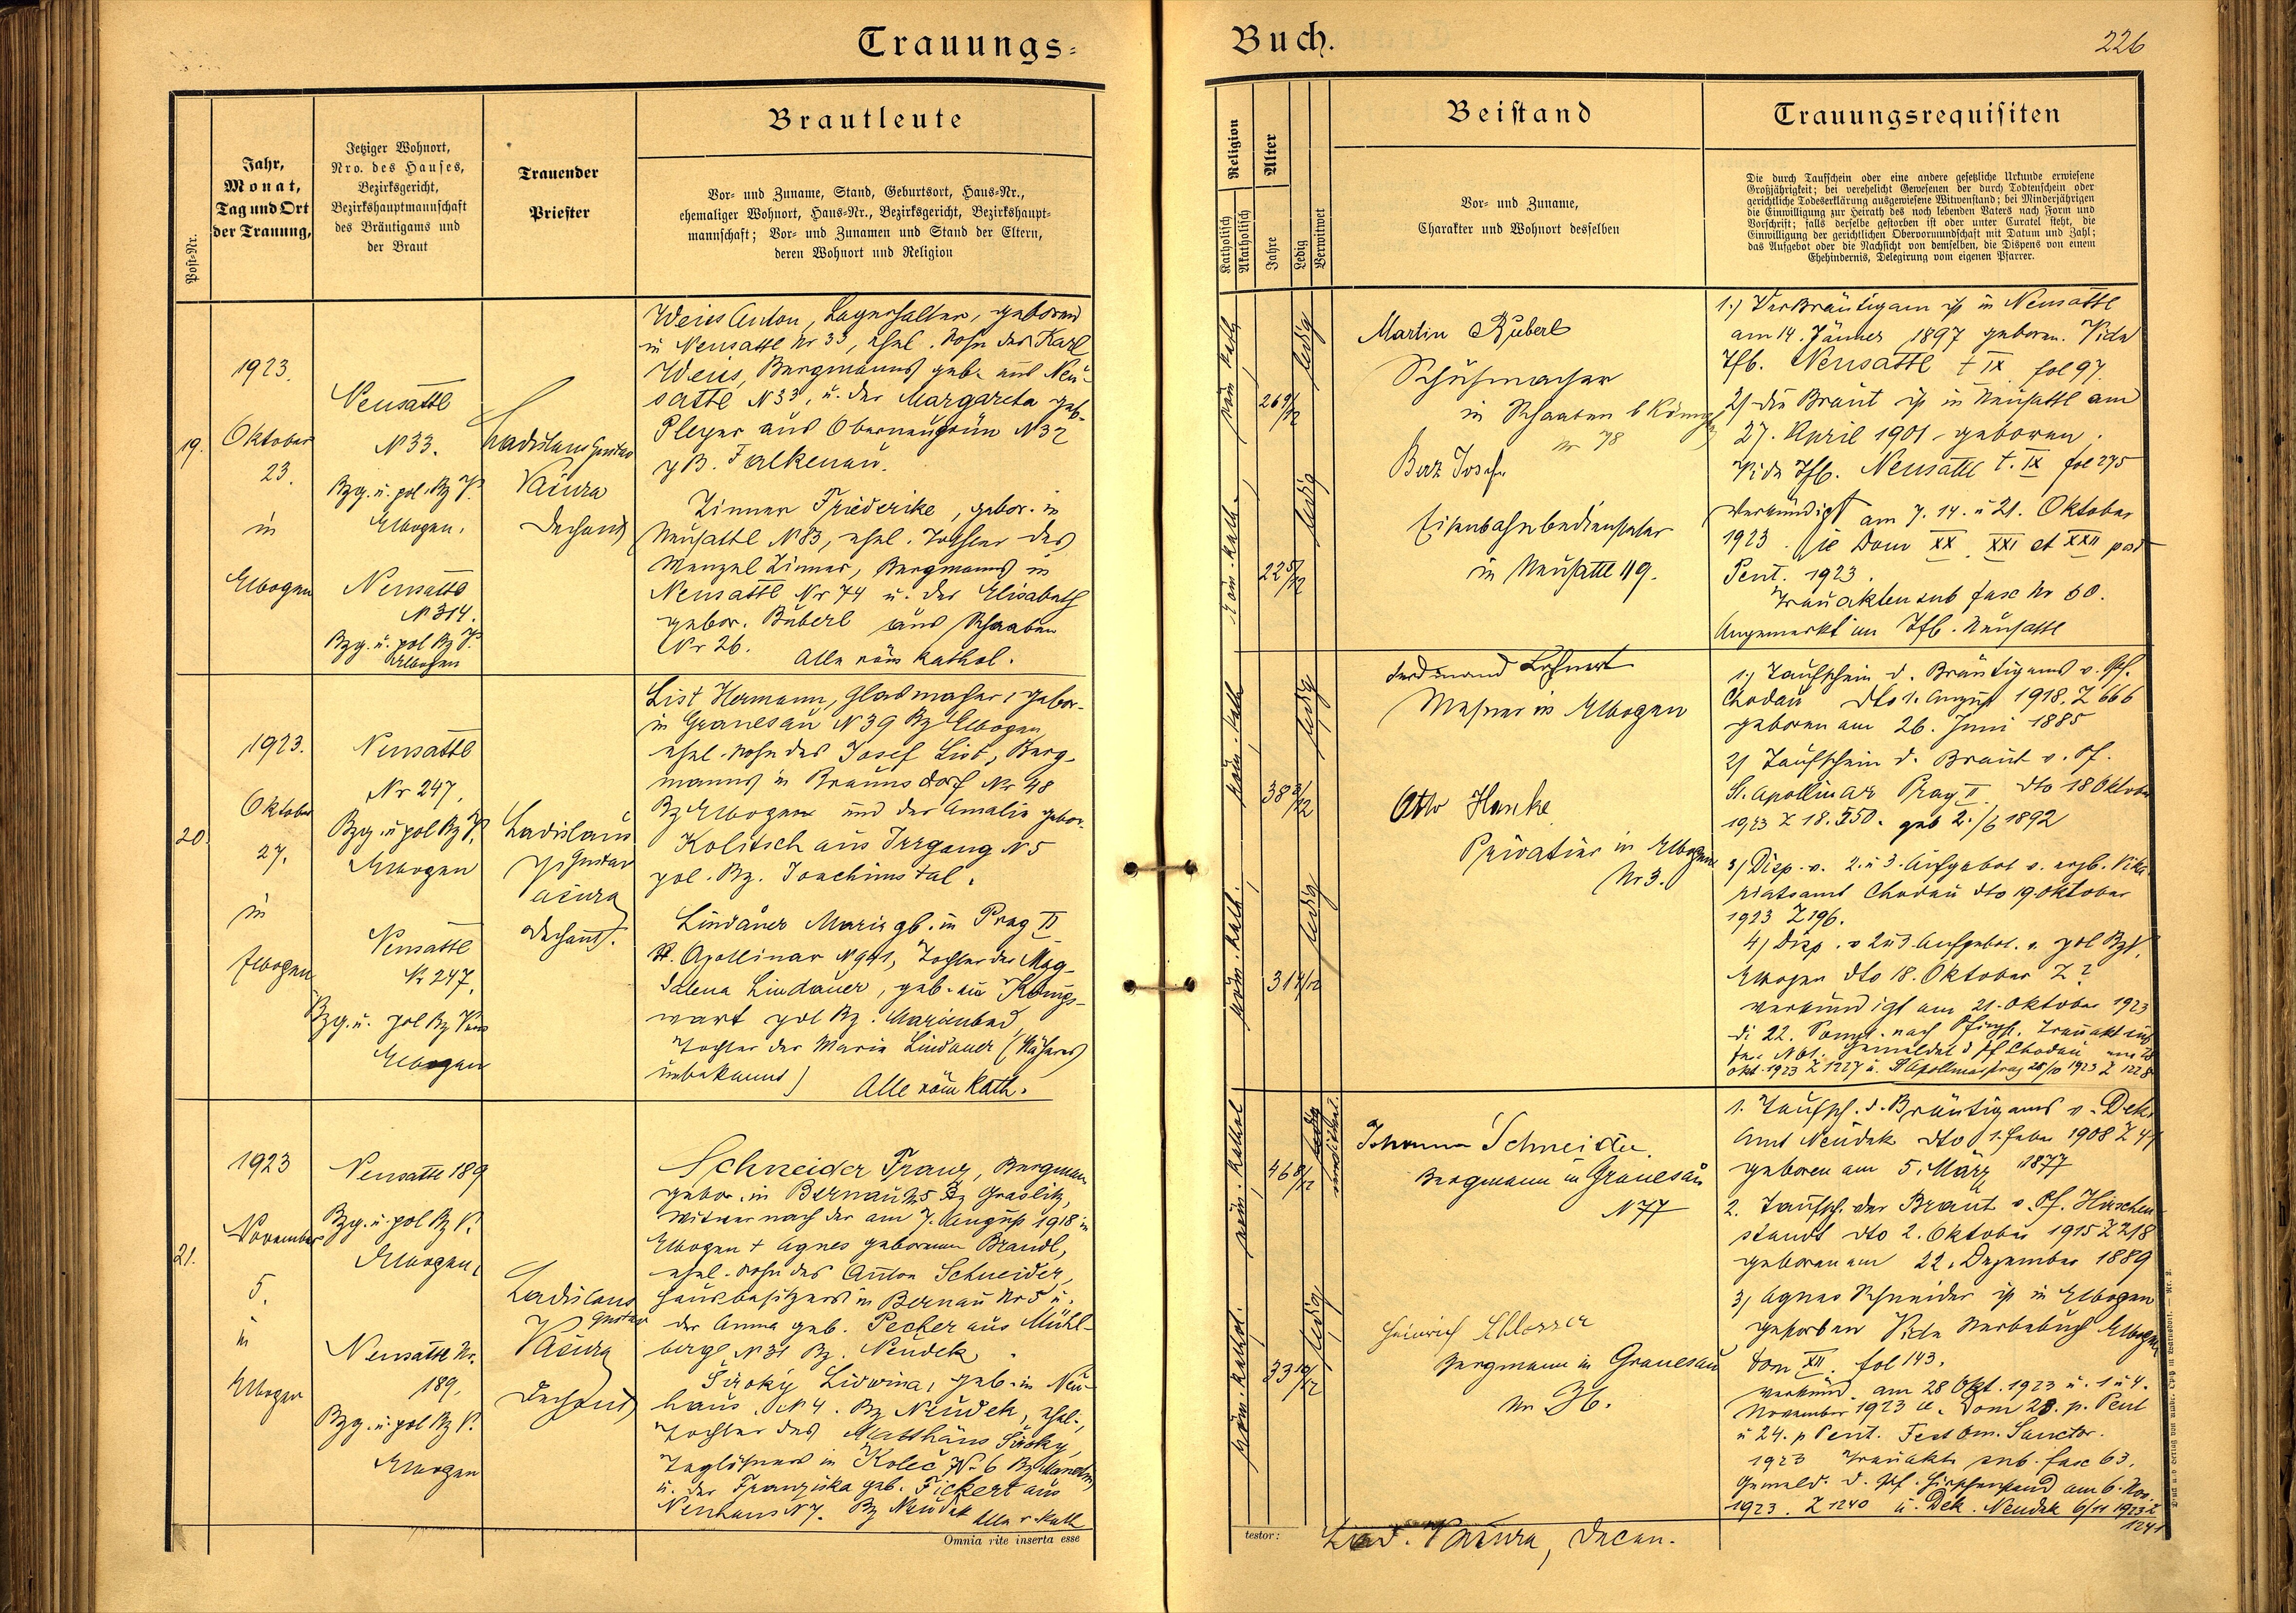 Trauungs-
Buch.
226
Post-Nr.
Jahr,
Monat,
Tag und Ort
der Trauung,
Jetziger Wohnort,
Nro. des Hauses,
Bezirksgericht,
Bezirkshauptmannschaft
des Bräutigams und
der Braut
Trauender
Priester
Brautleute
Vor- und Zuname, Stand, Geburtsort, Haus-Nr.,
ehemaliger Wohnort, Haus-Nr., Bezirksgericht, Bezirkshaupt-
mannschaft; Vor- und Zunamen und Stand der Eltern,
deren Wohnort und Religion
Religion
Katholisch
Akatholisch
Alter
Jahre
Ledig
Verwitwet
Beistand
Vor- und Zuname,
Charakter und Wohnort desselben
Trauungsrequisiten
Die durch Taufschein oder eine andere gesetzliche Urkunde erwiesene
Großjährigkeit; bei verehelicht Gewesenen der durch Todtenschein oder
gerichtliche Todeserklärung ausgewiesene Witwenstand; bei Minderjährigen
die Einwilligung zur Heirath des noch lebenden Vaters nach Form und
Vorschrift; falls derselbe gestorben ist oder unter Curatel steht, die
Einwilligung der gerichtlichen Obervormundschaft mit Datum und Zahl;
das Aufgebot oder die Nachsicht von demselben, die Dispens von einem
Ehehindernis, Delegirung vom eigenen Pfarrer.
19.
1923.
Oktober
23.
in
Elbogen
Neusattl
N 33.
Bzg. u. pol. Bz
Elbogen.
Neusattl
N 314.
Bzg. u. pol Bz
Elbogen
Ladislaus Gustav
Vačura
Dechant
Weis Anton, Lagerhalter, geboren
in Neusattl Nr 33, ehel. Sohn des Karl
Weis, Bergmanns geb. aus Neu-
sattl N 33, u. der Margareta geb.
Pleyer aus Oberneugrün N 32
Falkenau.
Zinner Friederike, gebor. in
Neusattl N 83, ehel. Tochter des
Wenzel Zinner, Bergmanns in
Neusattl Nr 74 u. der Elisabeth
gebor. Büberl aus Schaaben
Nr 26.
Alle röm kathol.
röm kath
26 9/12
ledig
röm. kath.
22 5/12
ledig
Martin Büberl
Schuhmacher
in Schaaben b
Nr 78
Josef
Eisenbahnbediensteter
in Neusattl 119.
1.) Der Bräutigam ist in Neusattl
am 14. Jänner 1897 geboren. Vide
Tfb. Neusattl t IX fol 97.
2) die Braut ist in Neusattl am
27. April 1901 geboren.
Vide Tfb. Neusattl t. IX fol 275
Verkündigt am 7. 14. u 21. Oktober
1923. die Dom XX. XXI et XXII post
Pent. 1923.
Trauakten sub fasc Nr 60.
Angemerkt im Tfb. Neusattl
20.
1923.
Oktober
27.
in
Elbogen
Neusattl
Nr 247.
Bzg. u pol Bz
Elbogen
Neusattl
Nr 247.
Bzg. u. pol Bz
Elbogen
Ladislaus
Gustav
Vačura
Dechant.
List Hermann, Glasmacher, gebor.
in Granesau N 39 Bz Elbogen
ehel. Sohn des Josef List, Berg-
manns in Braunsdorf Nr 48
Bz Elbogen und der Amalie gebor.
Kolitsch aus Irrgang N 5
pol. Bz. Joachimstal.
Lindauer Marie gb. in Prag II
St. Apollinar N 941, Tochter der Mag-
dalena Lindauer, geb. in Königs-
wart pol Bz. Marienbad
Tochter der Maria Lindauer (Näheres
unbekannt)
Alle röm kath.
röm. kath
38 3/12
ledig
röm. kath.
31 4/12
ledig
Ferdinand Lohnert
Messner in Elbogen
Otto Hanke
Privatier in Elbogen
Nr 3.
1.) Taufschein d. Bräutigams v. Pf.
Chodau dto 1. August 1918. Z 666
geboren am 26. Juni 1885
2) Taufschein d. Braut v. Pf.
St. Apollinar Prag II. dto 18 Oktober
1923 Z 18.550. geb 2./6 1892
3) Disp. v. 2. u 3. Aufgebot v. erzb. Vika-
riatsamt Chodau dto 19. Oktober
1923 Z 196.
4) Disp. v 2 u 3 Aufgebot. v. pol
Elbogen dto 18. Oktober Z ?
verkündigt am 21. Oktober 1923
di 22. Sonnt. nach Pfingst. Trauakt sub
fasc N 61. Gemeldet d Pf Chodau
Okt. 1923 Z 1227 u. St Apollinar Prag 28/10 1923 Z 1228
21.
1923
November
5.
in
Elbogen
Neusattl 189
Bzg. u. pol Bz
Elbogen.
Neusattl Nr.
189.
Bzg. u pol Bz
Elbogen
Ladislaus
Gustav
Vačura
Dechant
Schneider Franz, Bergmann
gebor. in Bernau N 5 Bz Graslitz,
Witwer nach der am 7. August 1918 in
Elbogen + Agnes geborenen Brandl,
ehel. Sohn des Anton Schneider,
Hausbesitzers in Bernau Nr 5 u.
der Anna geb. Pecher aus Mühl-
berg N 31 Bz. Neudek.
Široký Lidwina, geb. in Neu-
haus N 4. Bz Neudek, ehel.
Tochter des Matthäus Široky,
Taglöhners in Koleč N. 6 Bz
u. der Franziska geb. Fickert aus
Neuhaus N 7. Bz Neudek Alle r. kath
röm. kathol
46 8/12
röm. kathol.
33 10/12
ledig
Johann Schneider.
Bergmann in Granesau
N 77
Heinrich Schlosser
Bergmann in Granesau
Nr 36.
1. Taufsch. d. Bräutigams v. Dek.
Amt Neudek dto 1. Feber 1908 Z 47
geboren am 5. März 1877
2. Taufsch. der Braut v. Pf. Hirschen-
standt dto 2. Oktober 1915 Z 218
geboren am 22. Dezember 1889
3) Agnes Schneider ist in Elbogen
gestorben Vide Sterbebuch Elbogen
tom XII. fol 143.
verkünd. am 28 Okt. 1923 u. 1 u 4.
November 1923 Dom 23. p. Pent
u 24. p Pent. Fest Om. Sanctor.
1923 Trauakt sub. fasc 63.
Gemeld. d. Pf. Hirschenstand am 6. Nov.
1923. Z 1240 u. Dek. Neudek 6/11 1923 Z
1241
Omnia rite inserta esse
testor:
Lad. Vačura, Decan.